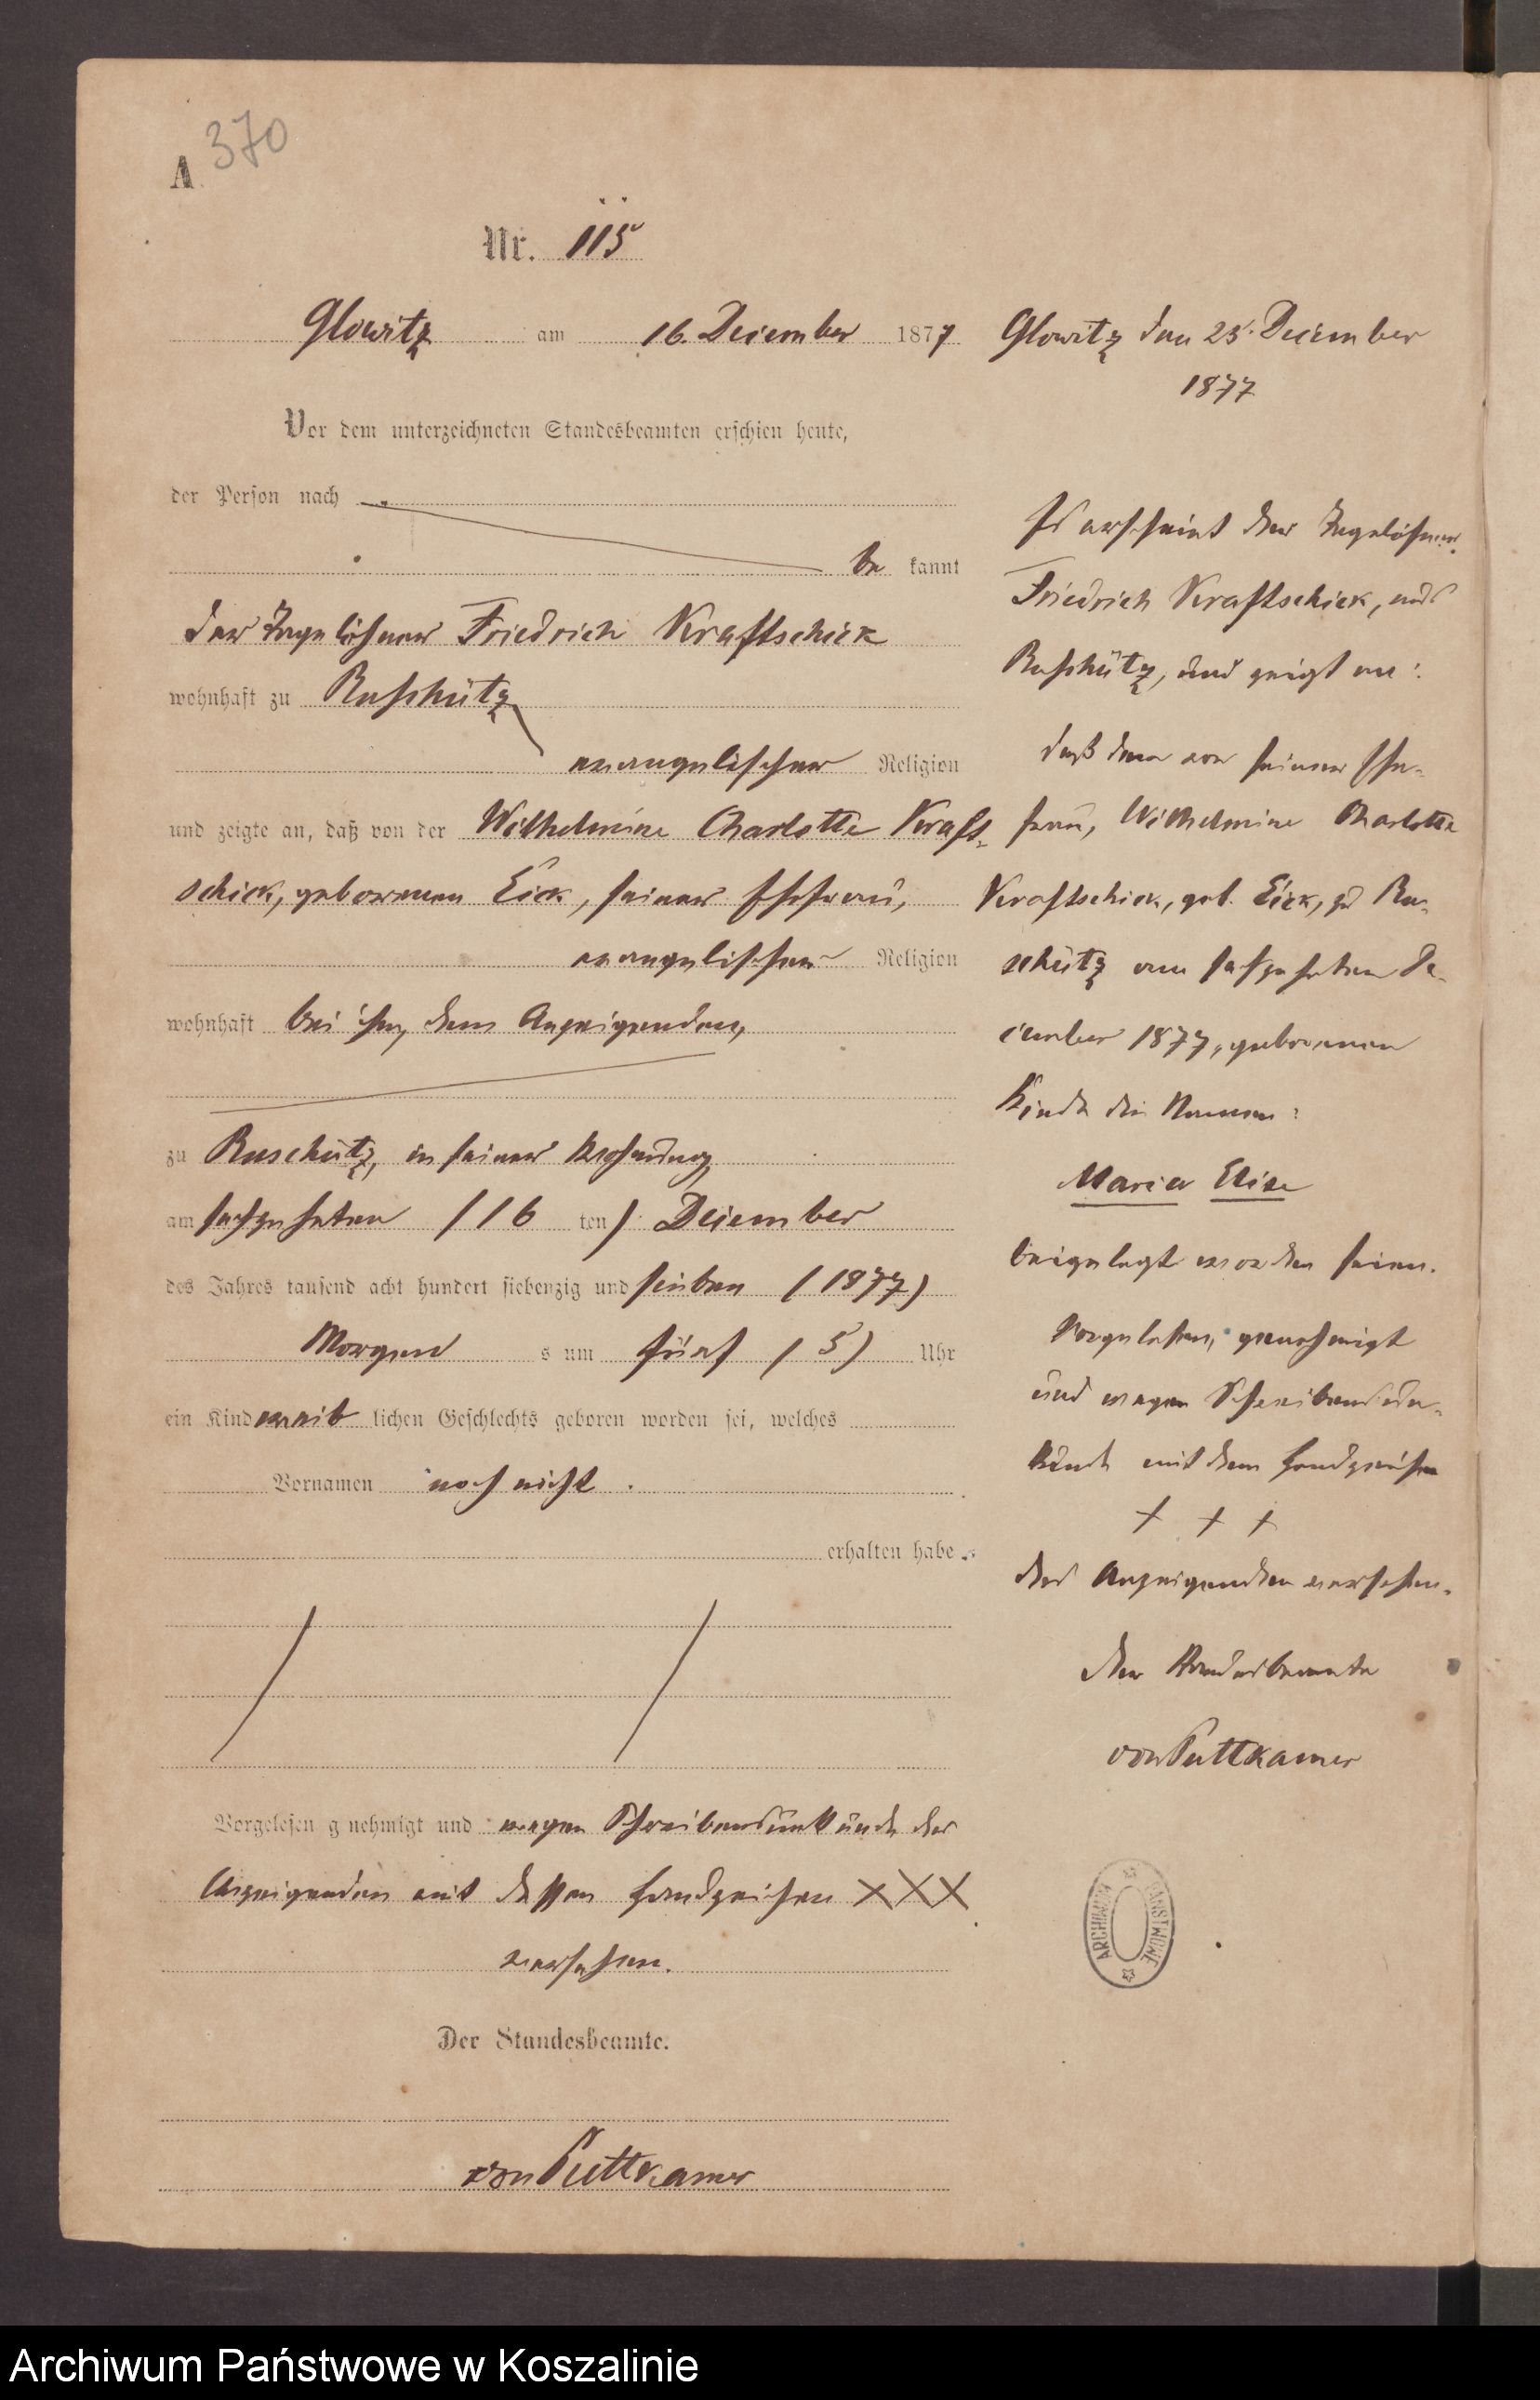 A.
370
Nr. 115
Glowitz am 16. December 1877
Vor dem unterzeichneten Standesbeamten erschien heute,
der Person nach
be kannt
der Tagelöhner Friedrich Kraftschick
wohnhaft zu Ruschütz
evangelischer Religion
und zeigte an, daß von der Wilhelmine Charlotte Kraft-
schick, geborenen Eick, seiner Ehefrau,
evangelischer Religion
wohnhaft bei ihm, dem Anzeigenden,
zu Ruschütz, in seiner Wohnung
am sechzehnten (16 ten) December
des Jahres tausend acht hundert siebenzig und sieben (1877)
Morgen s um fünf (5) Uhr
ein Kind weib lichen Geschlechts geboren worden sei, welches
Vornamen noch nicht
erhalten habe.
Vorgelesen g nehmigt und wegen Schreibensunkunde des
Anzeigenden mit dessen Handzeichen XXX
versehen.
Der Standesbeamte.
von Puttkamer
Glowitz den 23. December
1877
Es erscheint der Tagelöhner
Friedrich Kraftschick, aus
Ruschütz, und zeigt an:
daß dem von seiner Ehe-
frau, Wilhelmine Charlotte
Kraftschick, geb. Eick, zu Ru-
schütz am sechzehnten De-
cember 1877, geborenen
Kinde die Namen:
Maria Elise
beigelegt worden seien.
Vorgelesen, genehmigt
und wegen Schreibensun-
kunde mit dem Handzeichen
+ + +
des Anzeigenden versehen.
Der Standesbeamte
von Puttkamer
ARCHIWUM PAŃSTWOWE
Archiwum Państwowe w Koszalinie